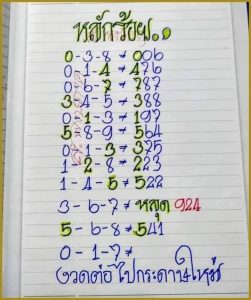 หลักร้อย..
0-3-8 * 006
0-1-4 * 476
0-6-7 * 787
3-4-5 * 388
0-1-3 * 197
5-8-9 * 564
0-1-3 * 375
1-2-8 * 223
1-4-5 * 522
3-6-7 * หลุด 924
5-6-8 * 541
0-1-7 *
งวดต่อไปกระดาษใหม่